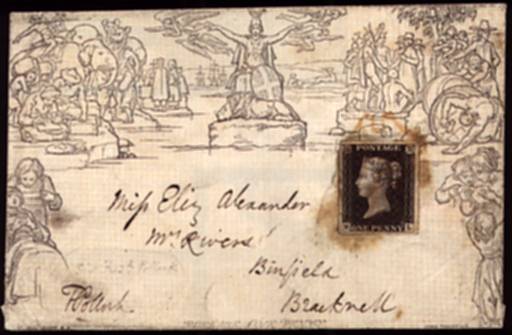 POSTAGE
ONE PENNY
Miſs Eliz Alexander
Mrs Rivers
Binfield
Bracknell